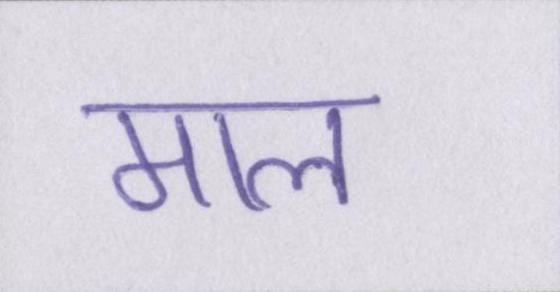 माल